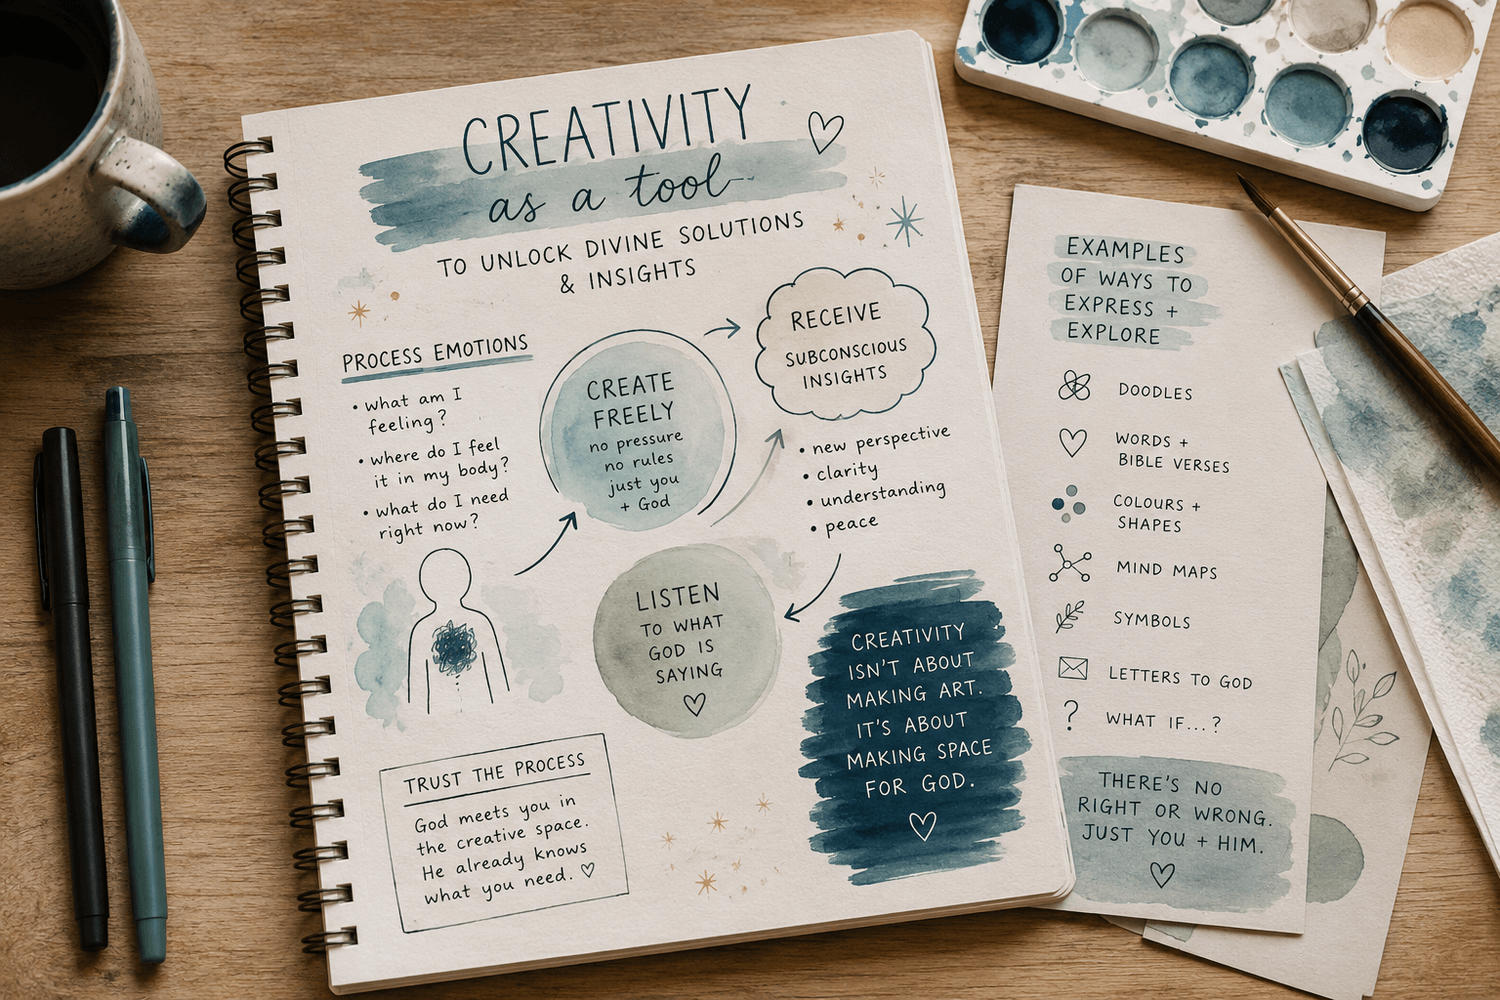 CREATIVITY
as a tool
TO UNLOCK DIVINE SOLUTIONS
& INSIGHTS
PROCESS EMOTIONS
• what am I
feeling?
• where do I feel
it in my body?
• what do I need
right now?
CREATE
FREELY
no pressure
no rules
just you
+ God
RECEIVE
SUBCONSCIOUS
INSIGHTS
• new perspective
• clarity
• understanding
• peace
LISTEN
TO WHAT
GOD IS
SAYING
TRUST THE PROCESS
God meets you in
the creative space.
He already knows
what you need. ♡
CREATIVITY
ISN'T ABOUT
MAKING ART.
IT'S ABOUT
MAKING SPACE
FOR GOD.
EXAMPLES
OF WAYS TO
EXPRESS +
EXPLORE
DOODLES
WORDS +
BIBLE VERSES
COLOURS +
SHAPES
MIND MAPS
SYMBOLS
LETTERS TO GOD
? WHAT IF...?
THERE'S NO
RIGHT OR WRONG.
JUST YOU + HIM.